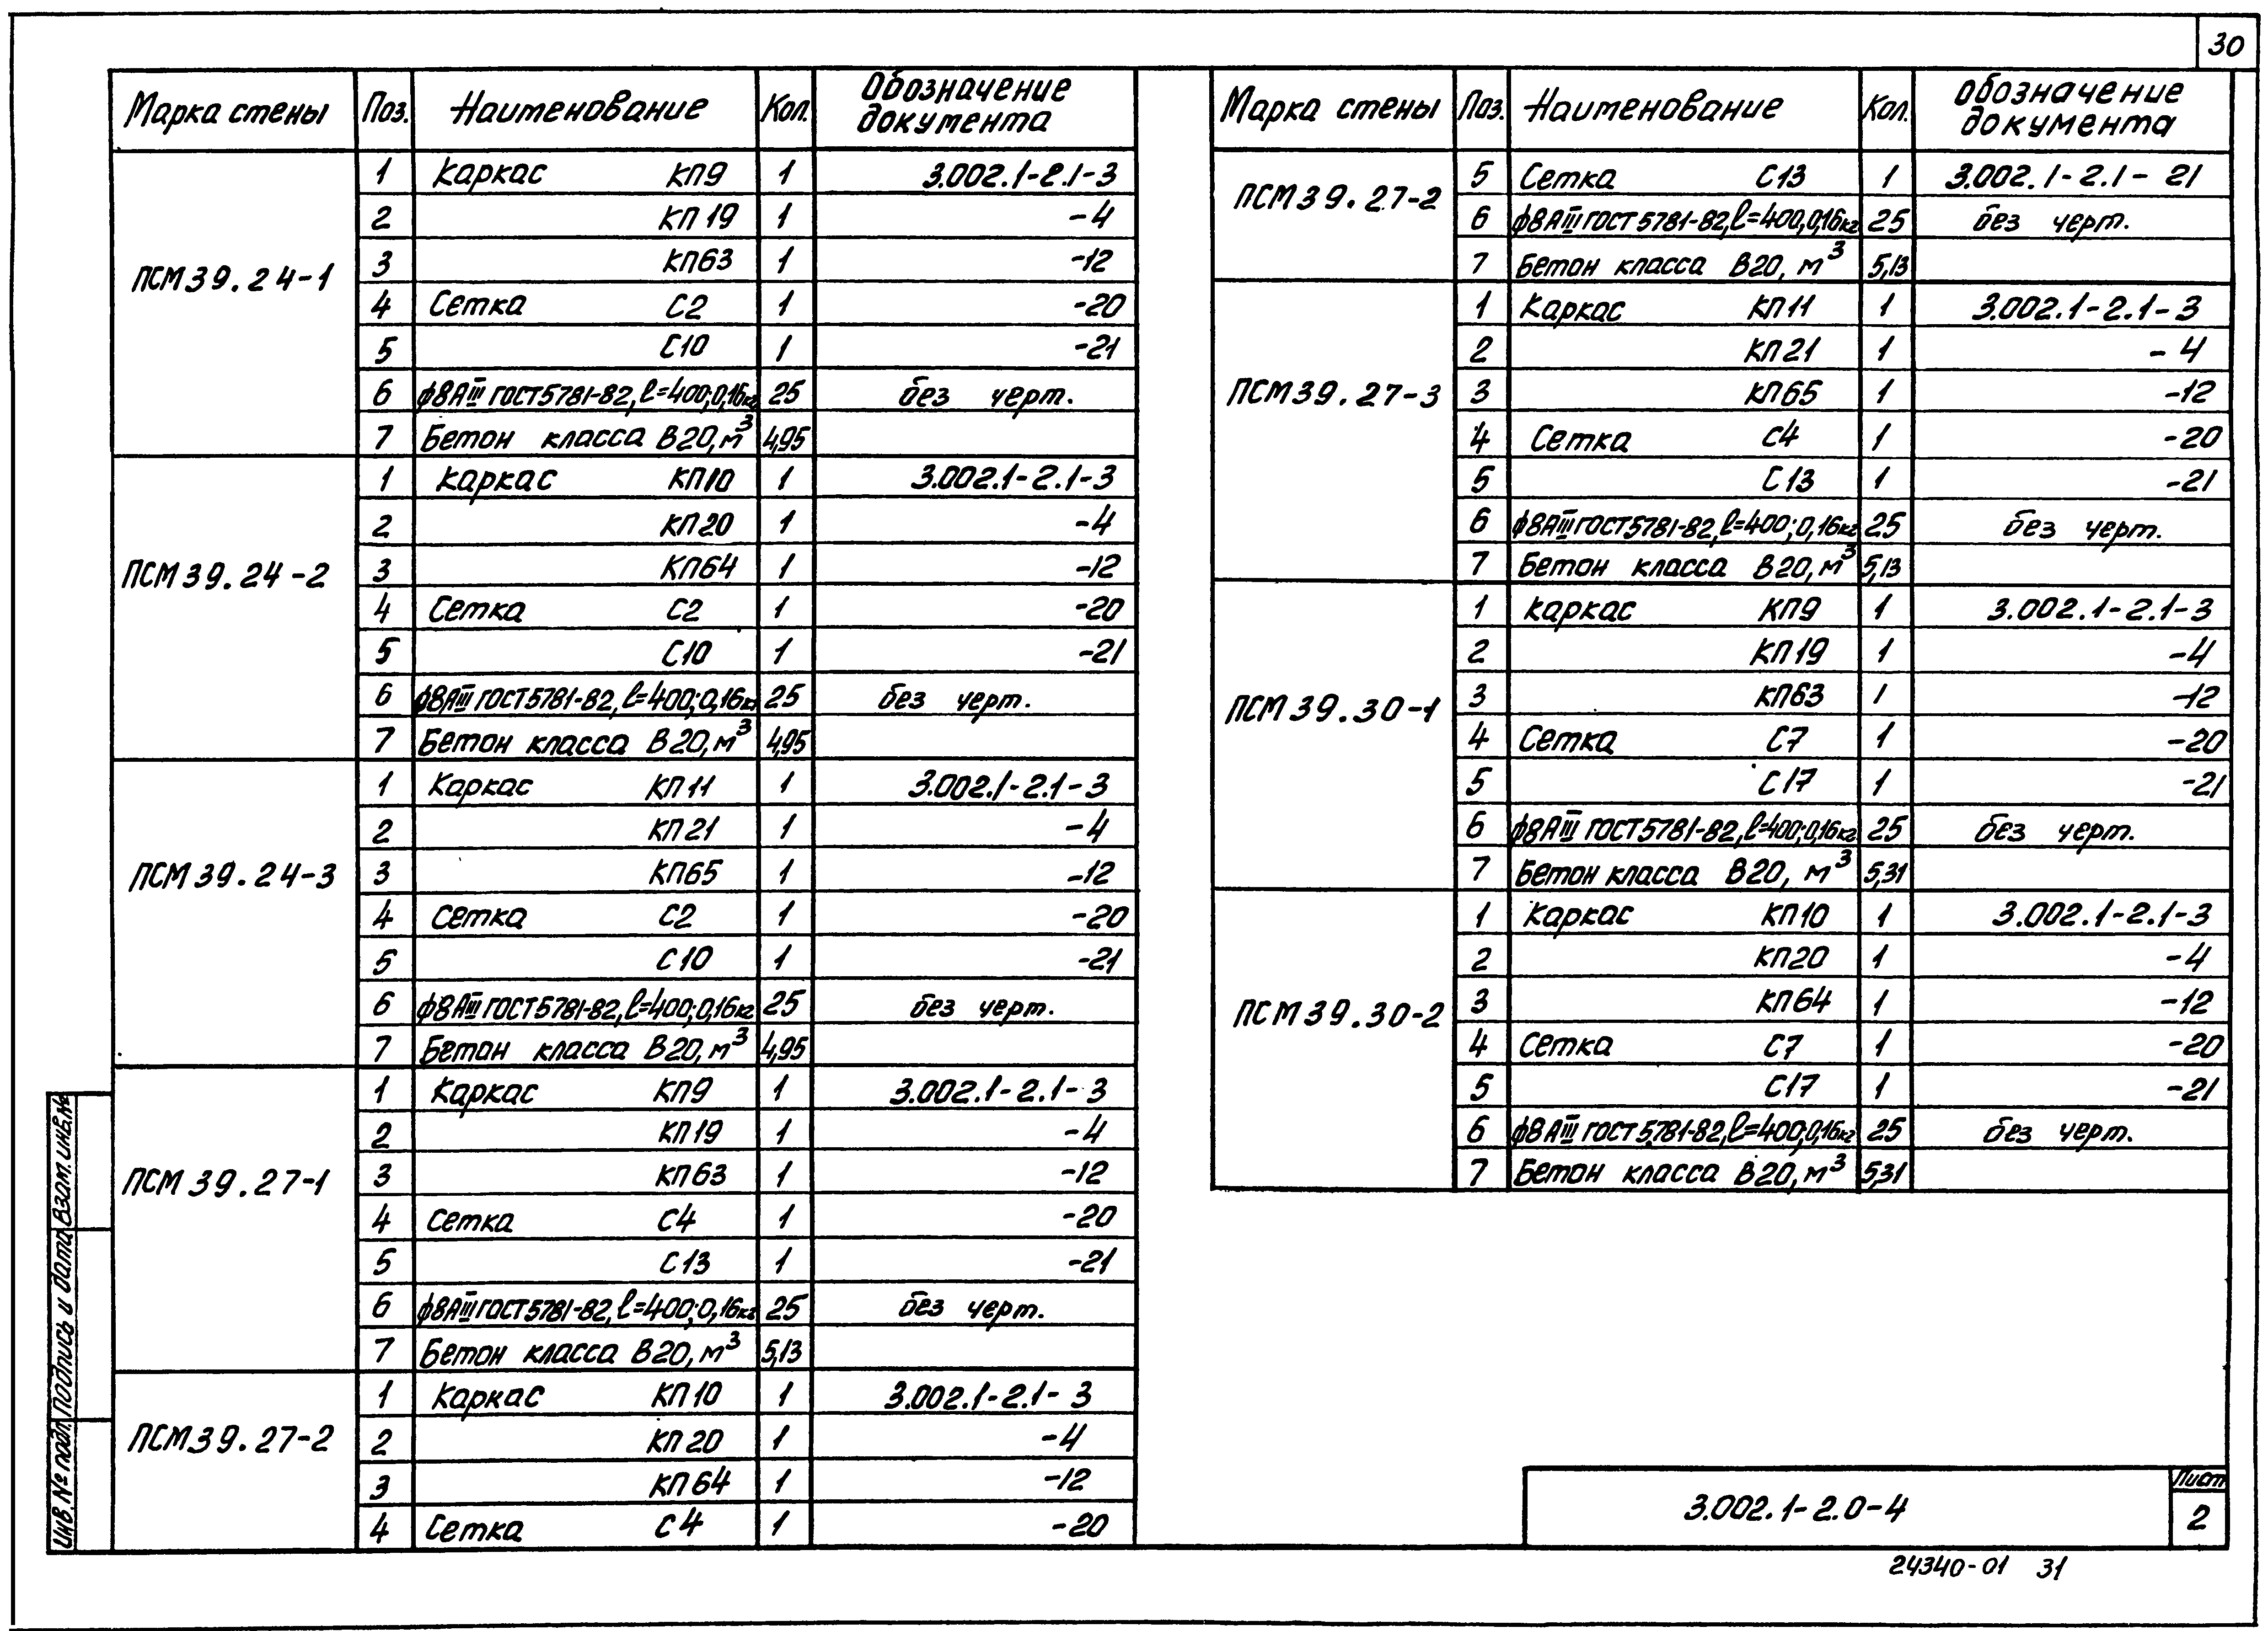 30
Марка стены Поз. Наименование Кол. Обозначение документа
ПСМ39.24-1
1 Каркас КП9 1 3.002.1-2.1-3
2 КП19 1 -4
3 КП63 1 -12
4 Сетка С2 1 -20
5 С10 1 -21
6 ф8АIII ГОСТ5781-82, l=400; 0,16кг 25 без черт.
7 Бетон класса В20, м³ 4,95
ПСМ39.24-2
1 Каркас КП10 1 3.002.1-2.1-3
2 КП20 1 -4
3 КП64 1 -12
4 Сетка С2 1 -20
5 С10 1 -21
6 ф8АIII ГОСТ5781-82, l=400; 0,16кг 25 без черт.
7 Бетон класса В20, м³ 4,95
ПСМ39.24-3
1 Каркас КП11 1 3.002.1-2.1-3
2 КП21 1 -4
3 КП65 1 -12
4 Сетка С2 1 -20
5 С10 1 -21
6 ф8АIII ГОСТ5781-82, l=400; 0,16кг 25 без черт.
7 Бетон класса В20, м³ 4,95
ПСМ39.27-1
1 Каркас КП9 1 3.002.1-2.1-3
2 КП19 1 -4
3 КП63 1 -12
4 Сетка С4 1 -20
5 С13 1 -21
6 ф8АIII ГОСТ5781-82, l=400; 0,16кг 25 без черт.
7 Бетон класса В20, м³ 5,13
ПСМ39.27-2
1 Каркас КП10 1 3.002.1-2.1-3
2 КП20 1 -4
3 КП64 1 -12
4 Сетка С4 1 -20
Марка стены Поз. Наименование Кол. Обозначение документа
ПСМ39.27-2
5 Сетка С13 1 3.002.1-2.1-21
6 ф8АIII ГОСТ5781-82, l=400, 0,16кг 25 без черт.
7 Бетон класса В20, м³ 5,13
ПСМ39.27-3
1 Каркас КП11 1 3.002.1-2.1-3
2 КП21 1 -4
3 КП65 1 -12
4 Сетка С4 1 -20
5 С13 1 -21
6 ф8АIII ГОСТ5781-82, l=400; 0,16кг 25 без черт.
7 Бетон класса В20, м³ 5,13
ПСМ39.30-1
1 Каркас КП9 1 3.002.1-2.1-3
2 КП19 1 -4
3 КП63 1 -12
4 Сетка С7 1 -20
5 С17 1 -21
6 ф8АIII ГОСТ5781-82, l=400; 0,16кг 25 без черт.
7 Бетон класса В20, м³ 5,31
ПСМ39.30-2
1 Каркас КП10 1 3.002.1-2.1-3
2 КП20 1 -4
3 КП64 1 -12
4 Сетка С7 1 -20
5 С17 1 -21
6 ф8АIII ГОСТ5781-82, l=400; 0,16кг 25 без черт.
7 Бетон класса В20, м³ 5,31
Инв. № подл. Подпись и дата Взам. инв. №
3.002.1-2.0-4
Лист
2
24340-01 31